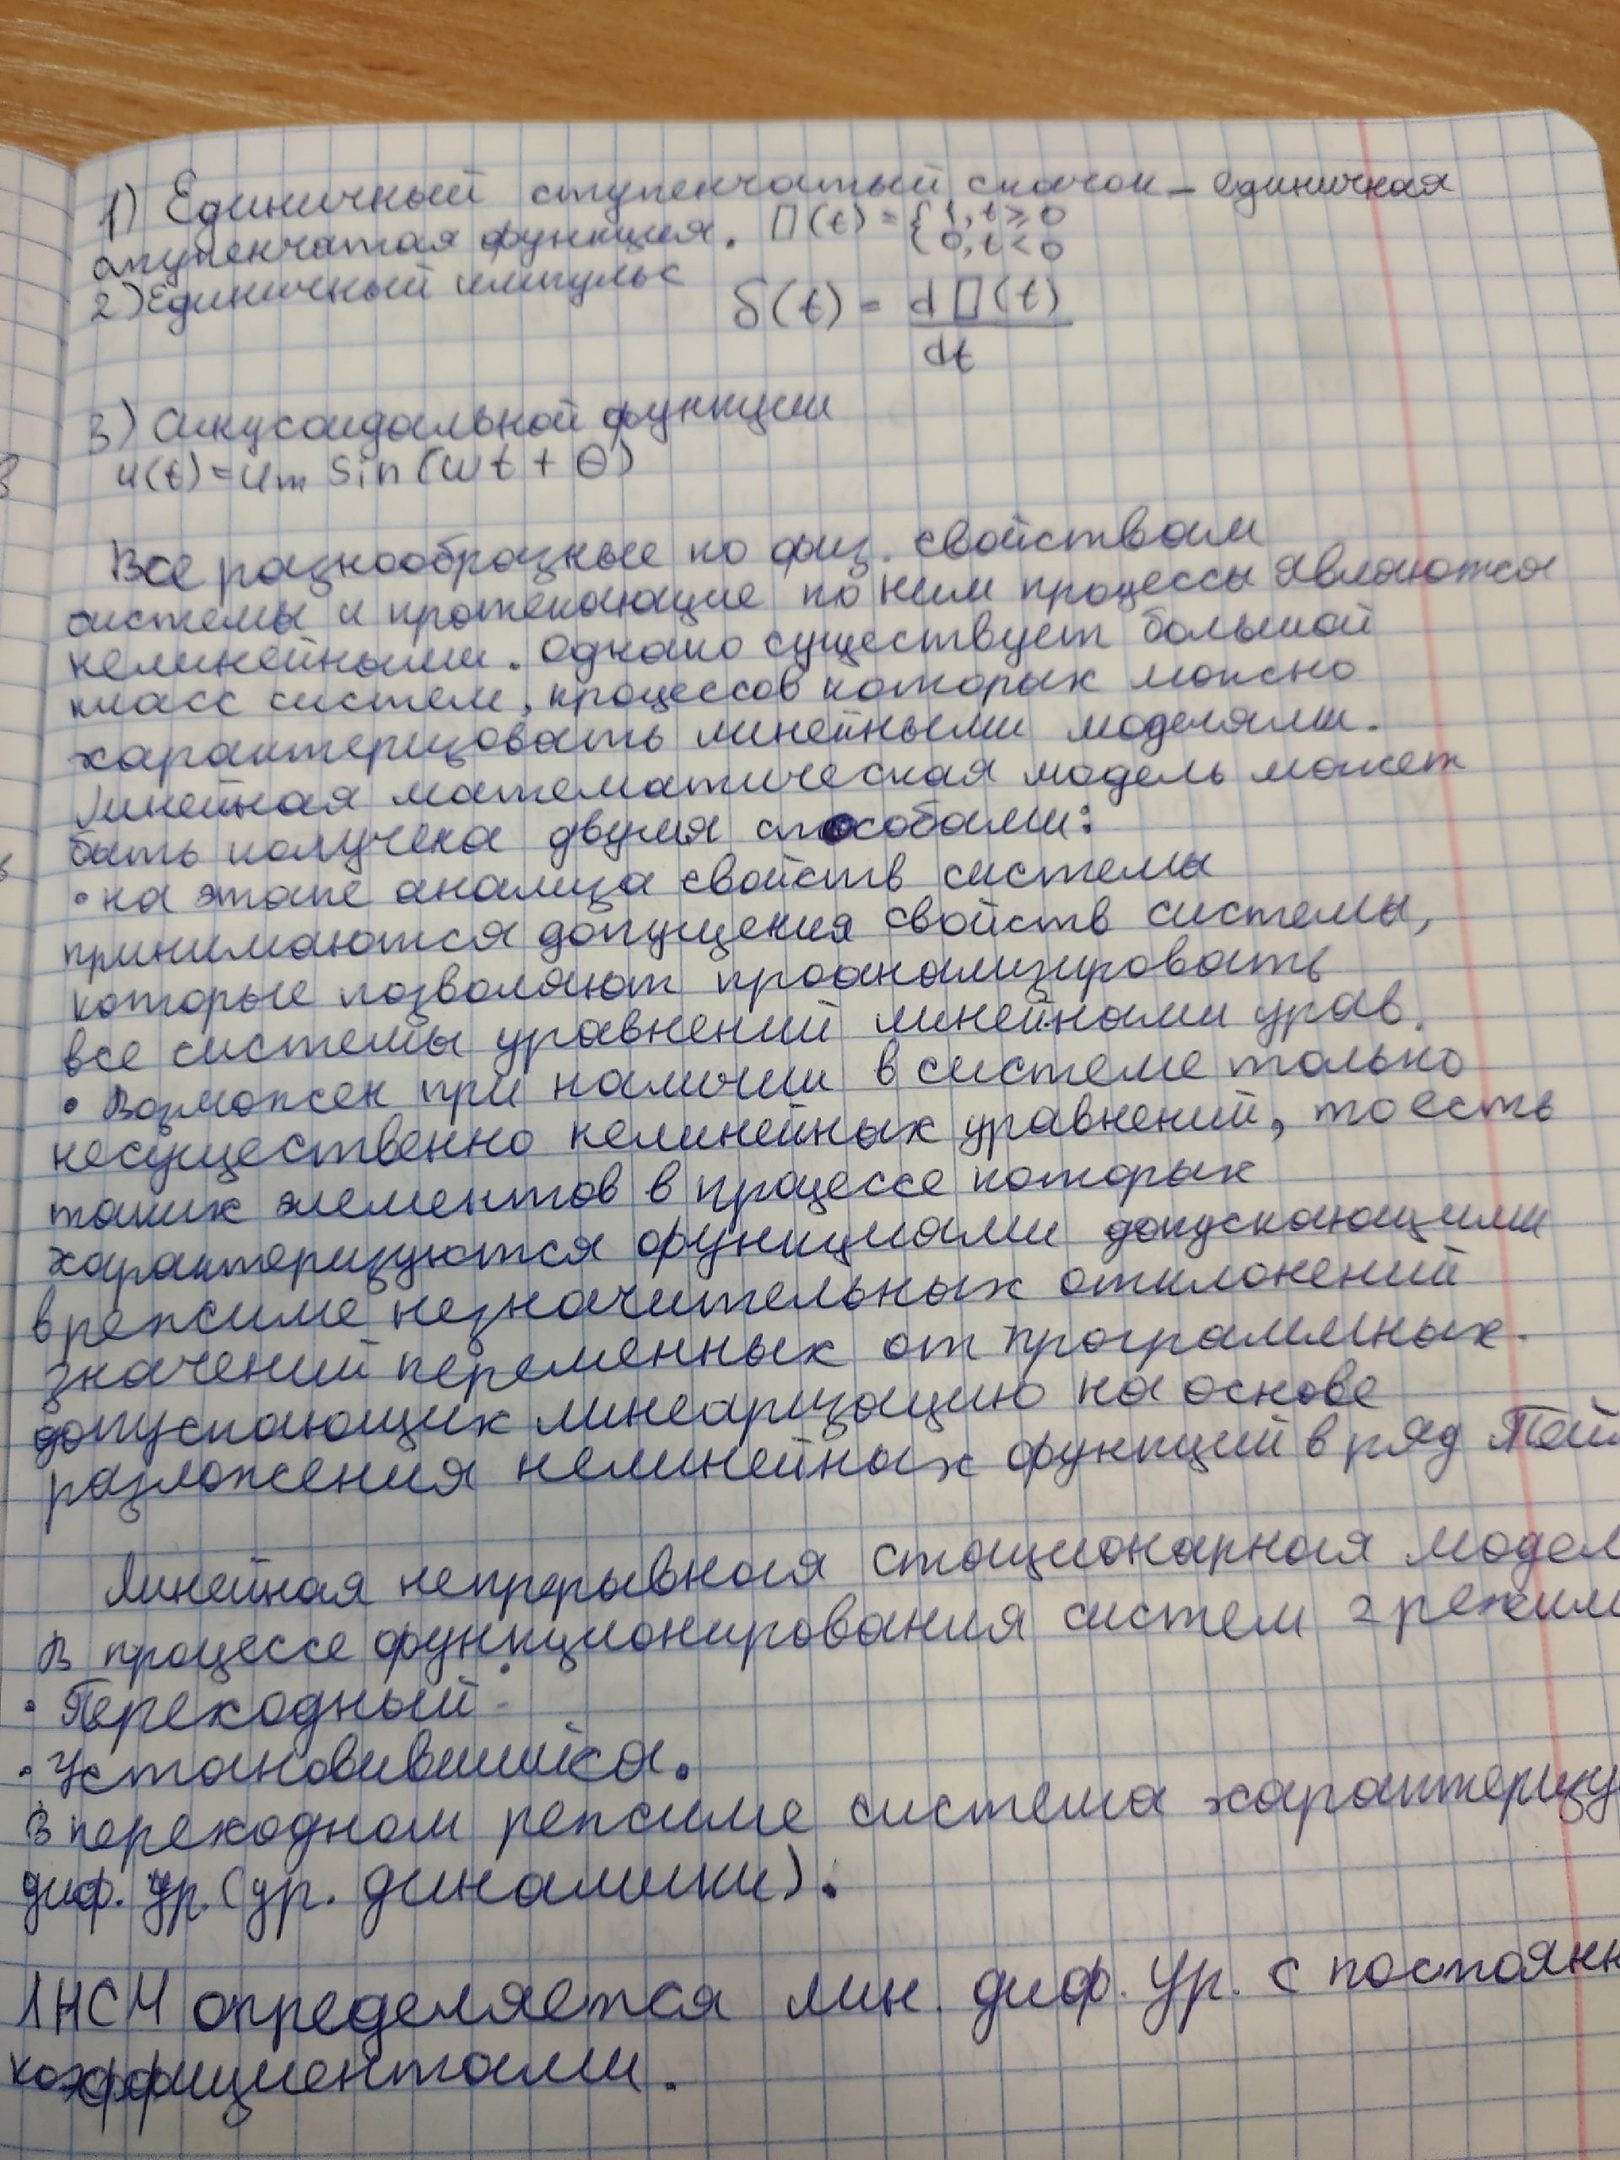 1) Единичный ступенчатый скачок – единичная
ступенчатая функция. П(t) = { 1, t ≥ 0
{ 0, t < 0
2) Единичный импульс
δ(t) = dП(t)
dt
3) синусоидальной функции
u(t) = um sin(ωt + θ)
Все разнообразные по физ. свойствам
системы и протекающие по ним процессы являются
нелинейными. Однако существует большой
класс систем, процессов которых можно
характеризовать линейными моделями.
Линейная математическая модель может
быть получена двумя способами:
• на этапе анализа свойств системы
принимаются допущения свойств системы,
которые позволяют проанализировать
все системы уравнений линейнами урав.
• Возможен при наличии в системе только
несущественно нелинейных уравнений, то есть
таких элементов в процессе которых
характеризуются функциями допускающими
в режиме незначительных отклонений
значений переменных от программных.
допускающих линеаризацию на основе
разложения нелинейных функций в ряд Тей
Линейная непрерывная стационарная модел
В процессе функционирования систем 2 режим
• Переходный
• Установившийся.
В переходном режиме система характеризу
диф. ур. (ур. динамики).
ЛНСМ определяется лин. диф. ур. с постоянн
коэффициентами.